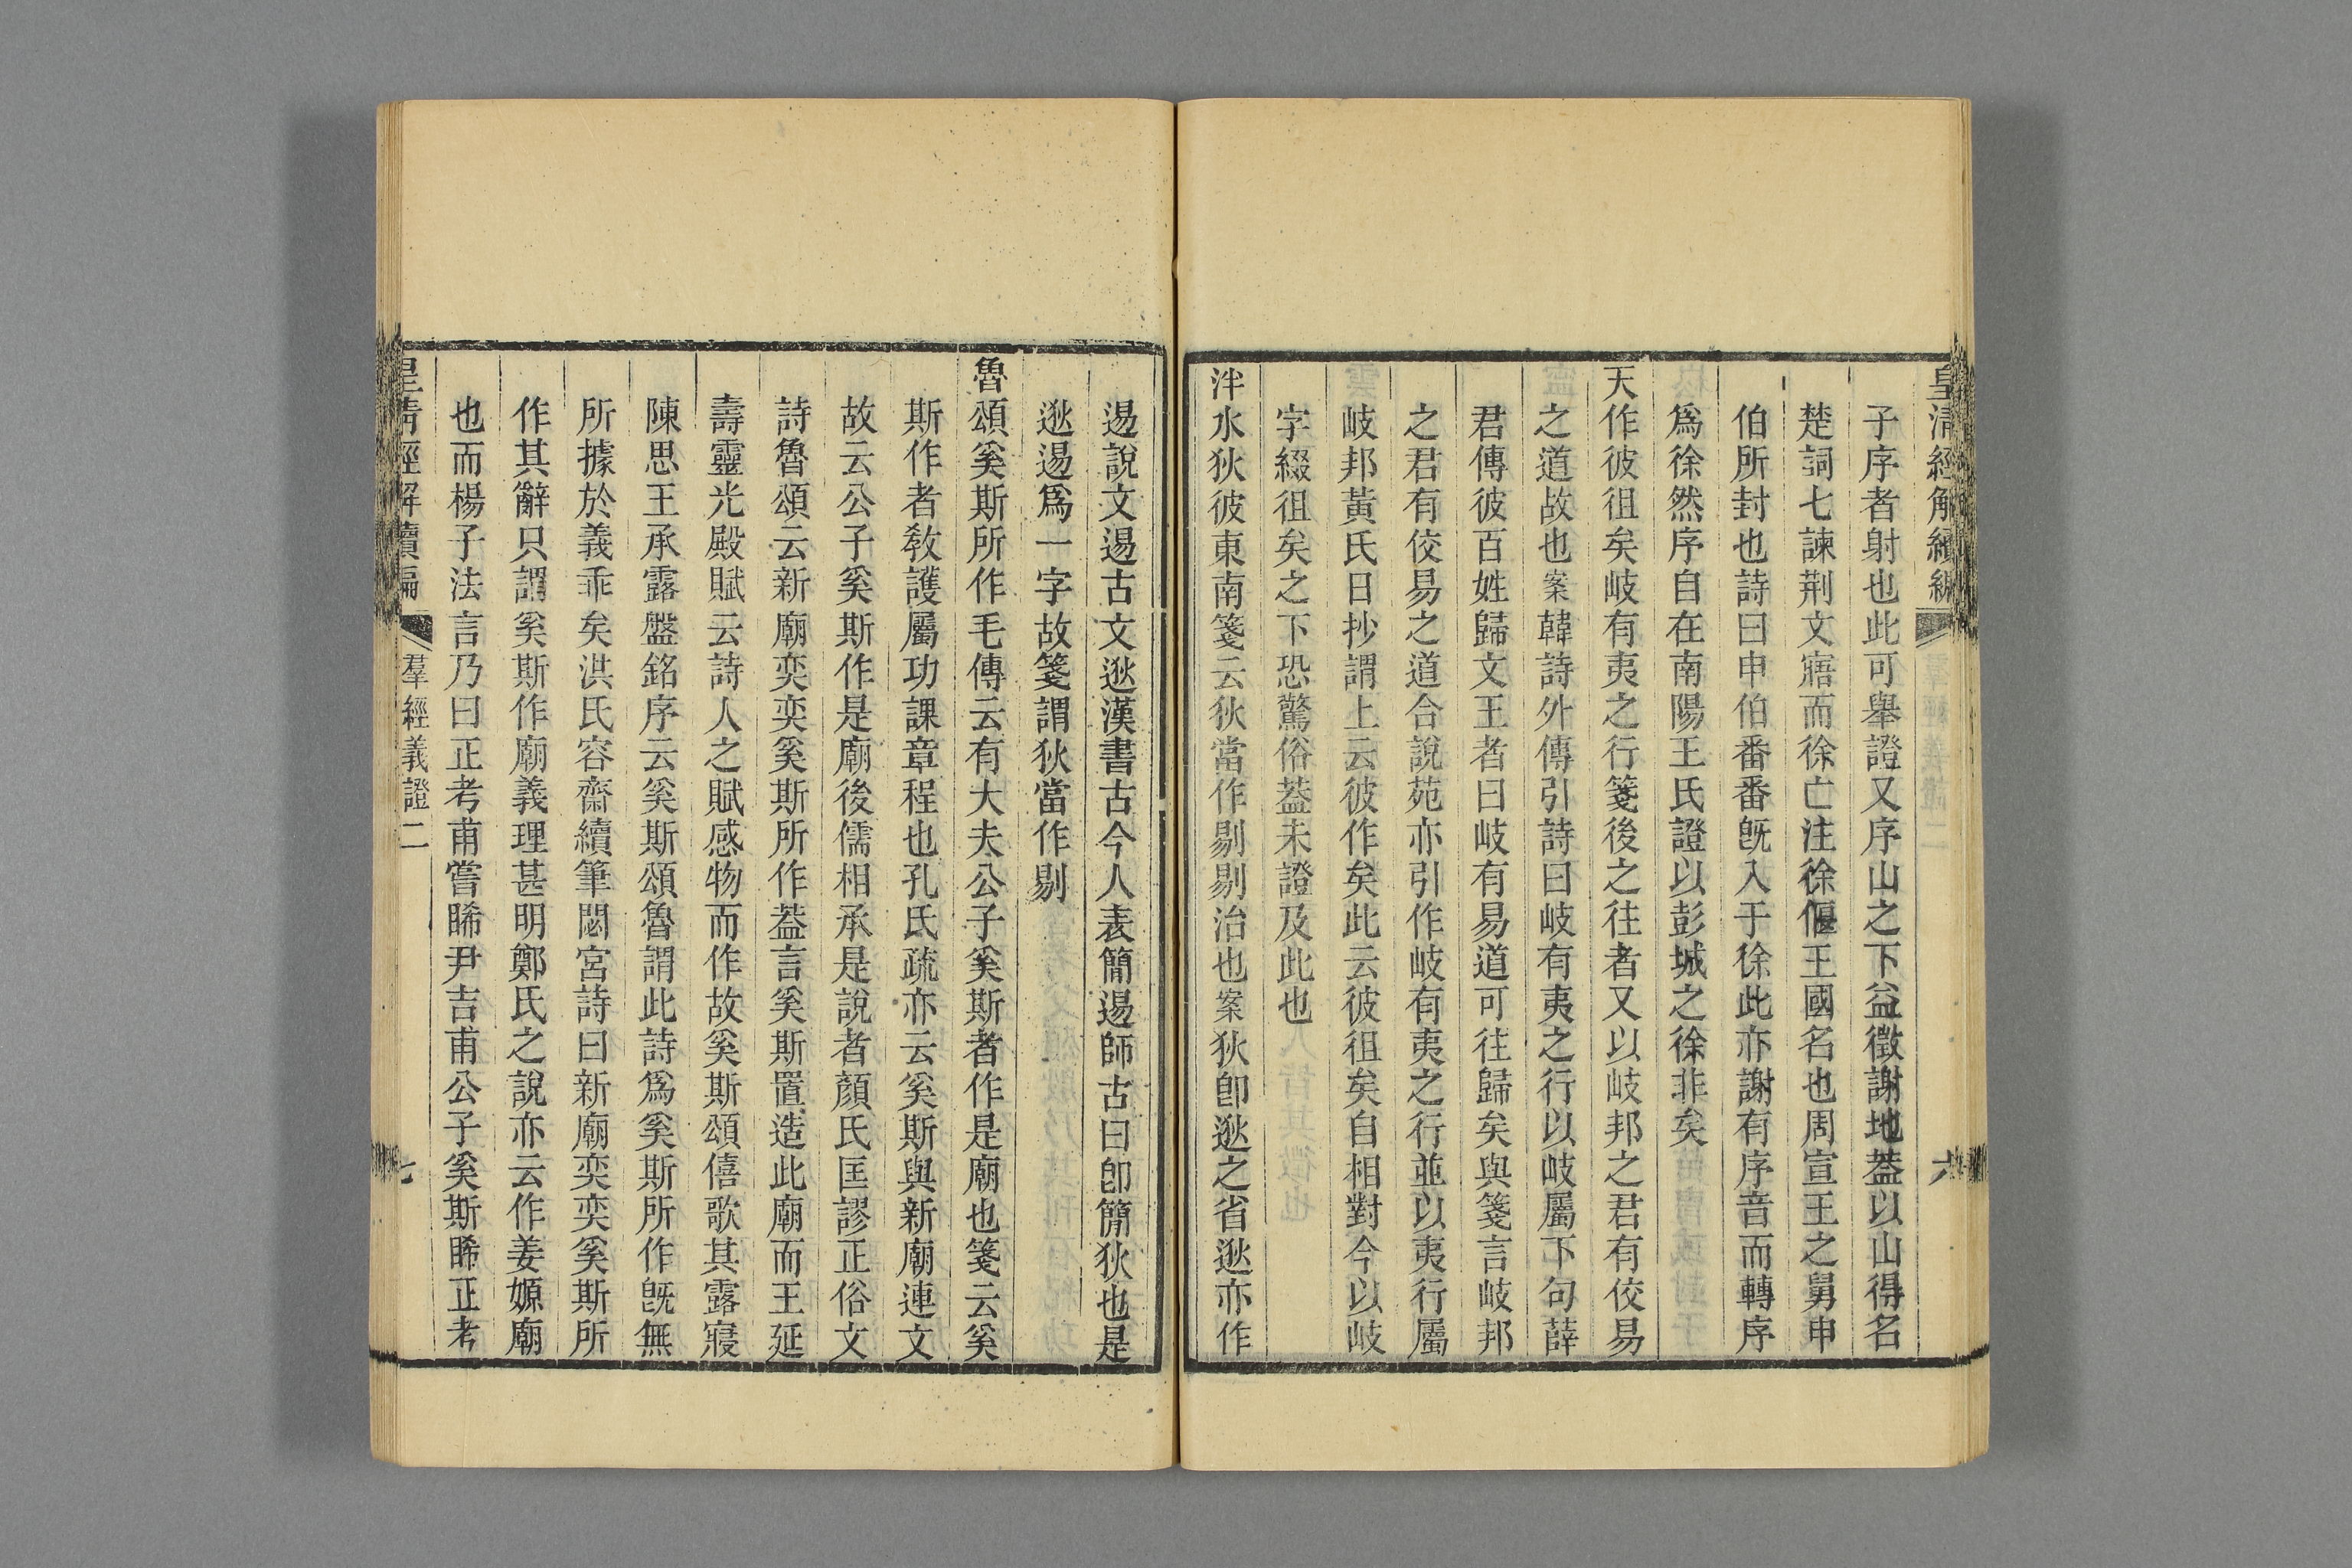 皇清經解續編
六
子序者射也此可舉證又序山之下益徵謝地葢以山得名
楚詞七諫荆文寤而徐亡注徐偃王國名也周宣王之舅申
伯所封也詩曰申伯番番旣入于徐此亦謝有序音而轉序
爲徐然序自在南陽王氏證以彭城之徐非矣
天作彼徂矣岐有夷之行箋後之往者又以岐邦之君有佼易
之道故也案韓詩外傳引詩曰岐有夷之行以岐屬下句薛
君傳彼百姓歸文王者曰岐有易道可往歸矣與箋言岐邦
之君有佼易之道合說苑亦引作岐有夷之行並以夷行屬
岐邦黃氏日抄謂上云彼作矣此云彼徂矣自相對今以岐
字綴徂矣之下恐驚俗葢未證及此也
泮水狄彼東南箋云狄當作剔剔治也案狄卽逖之省逖亦作
逷說文逷古文逖漢書古今人表簡逷師古曰卽簡狄也是
逖逷爲一字故箋謂狄當作剔
魯頌奚斯所作毛傳云有大夫公子奚斯者作是廟也箋云奚
斯作者敎護屬功課章程也孔氏疏亦云奚斯與新廟連文
故云公子奚斯作是廟後儒相承是說者顏氏匡謬正俗文
詩魯頌云新廟奕奕奚斯所作葢言奚斯置造此廟而王延
壽靈光殿賦云詩人之賦感物而作故奚斯頌僖歌其露寢
陳思王承露盤銘序云奚斯頌魯謂此詩爲奚斯所作旣無
所據於義乖矣洪氏容齋續筆閟宮詩曰新廟奕奕奚斯所
作其辭只謂奚斯作廟義理甚明鄭氏之說亦云作姜嫄廟
也而楊子法言乃曰正考甫嘗睎尹吉甫公子奚斯睎正考
皇清經解續編
羣經義證二
七